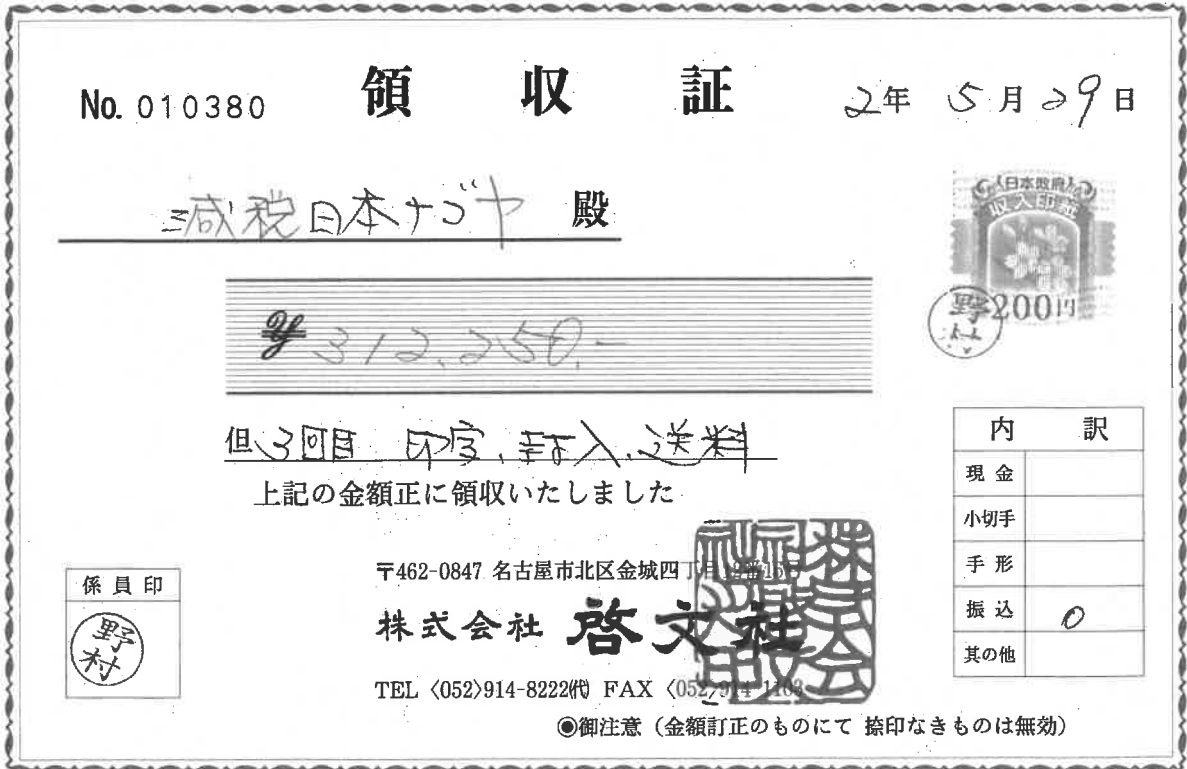 No. 010380
領収証
2年 5月29日
減税日本ナゴヤ 殿
日本政府
収入印紙
200円
野村
¥312,250.-
但 3回目 印字、封入、送料
上記の金額正に領収いたしました
内訳
現金
小切手
手形
振込 0
其の他
係員印
野村
〒462-0847 名古屋市北区金城四丁目
株式会社 啓文社
TEL〈052〉914-8222㈹ FAX〈052〉914-1103
◉御注意（金額訂正のものにて 捺印なきものは無効）